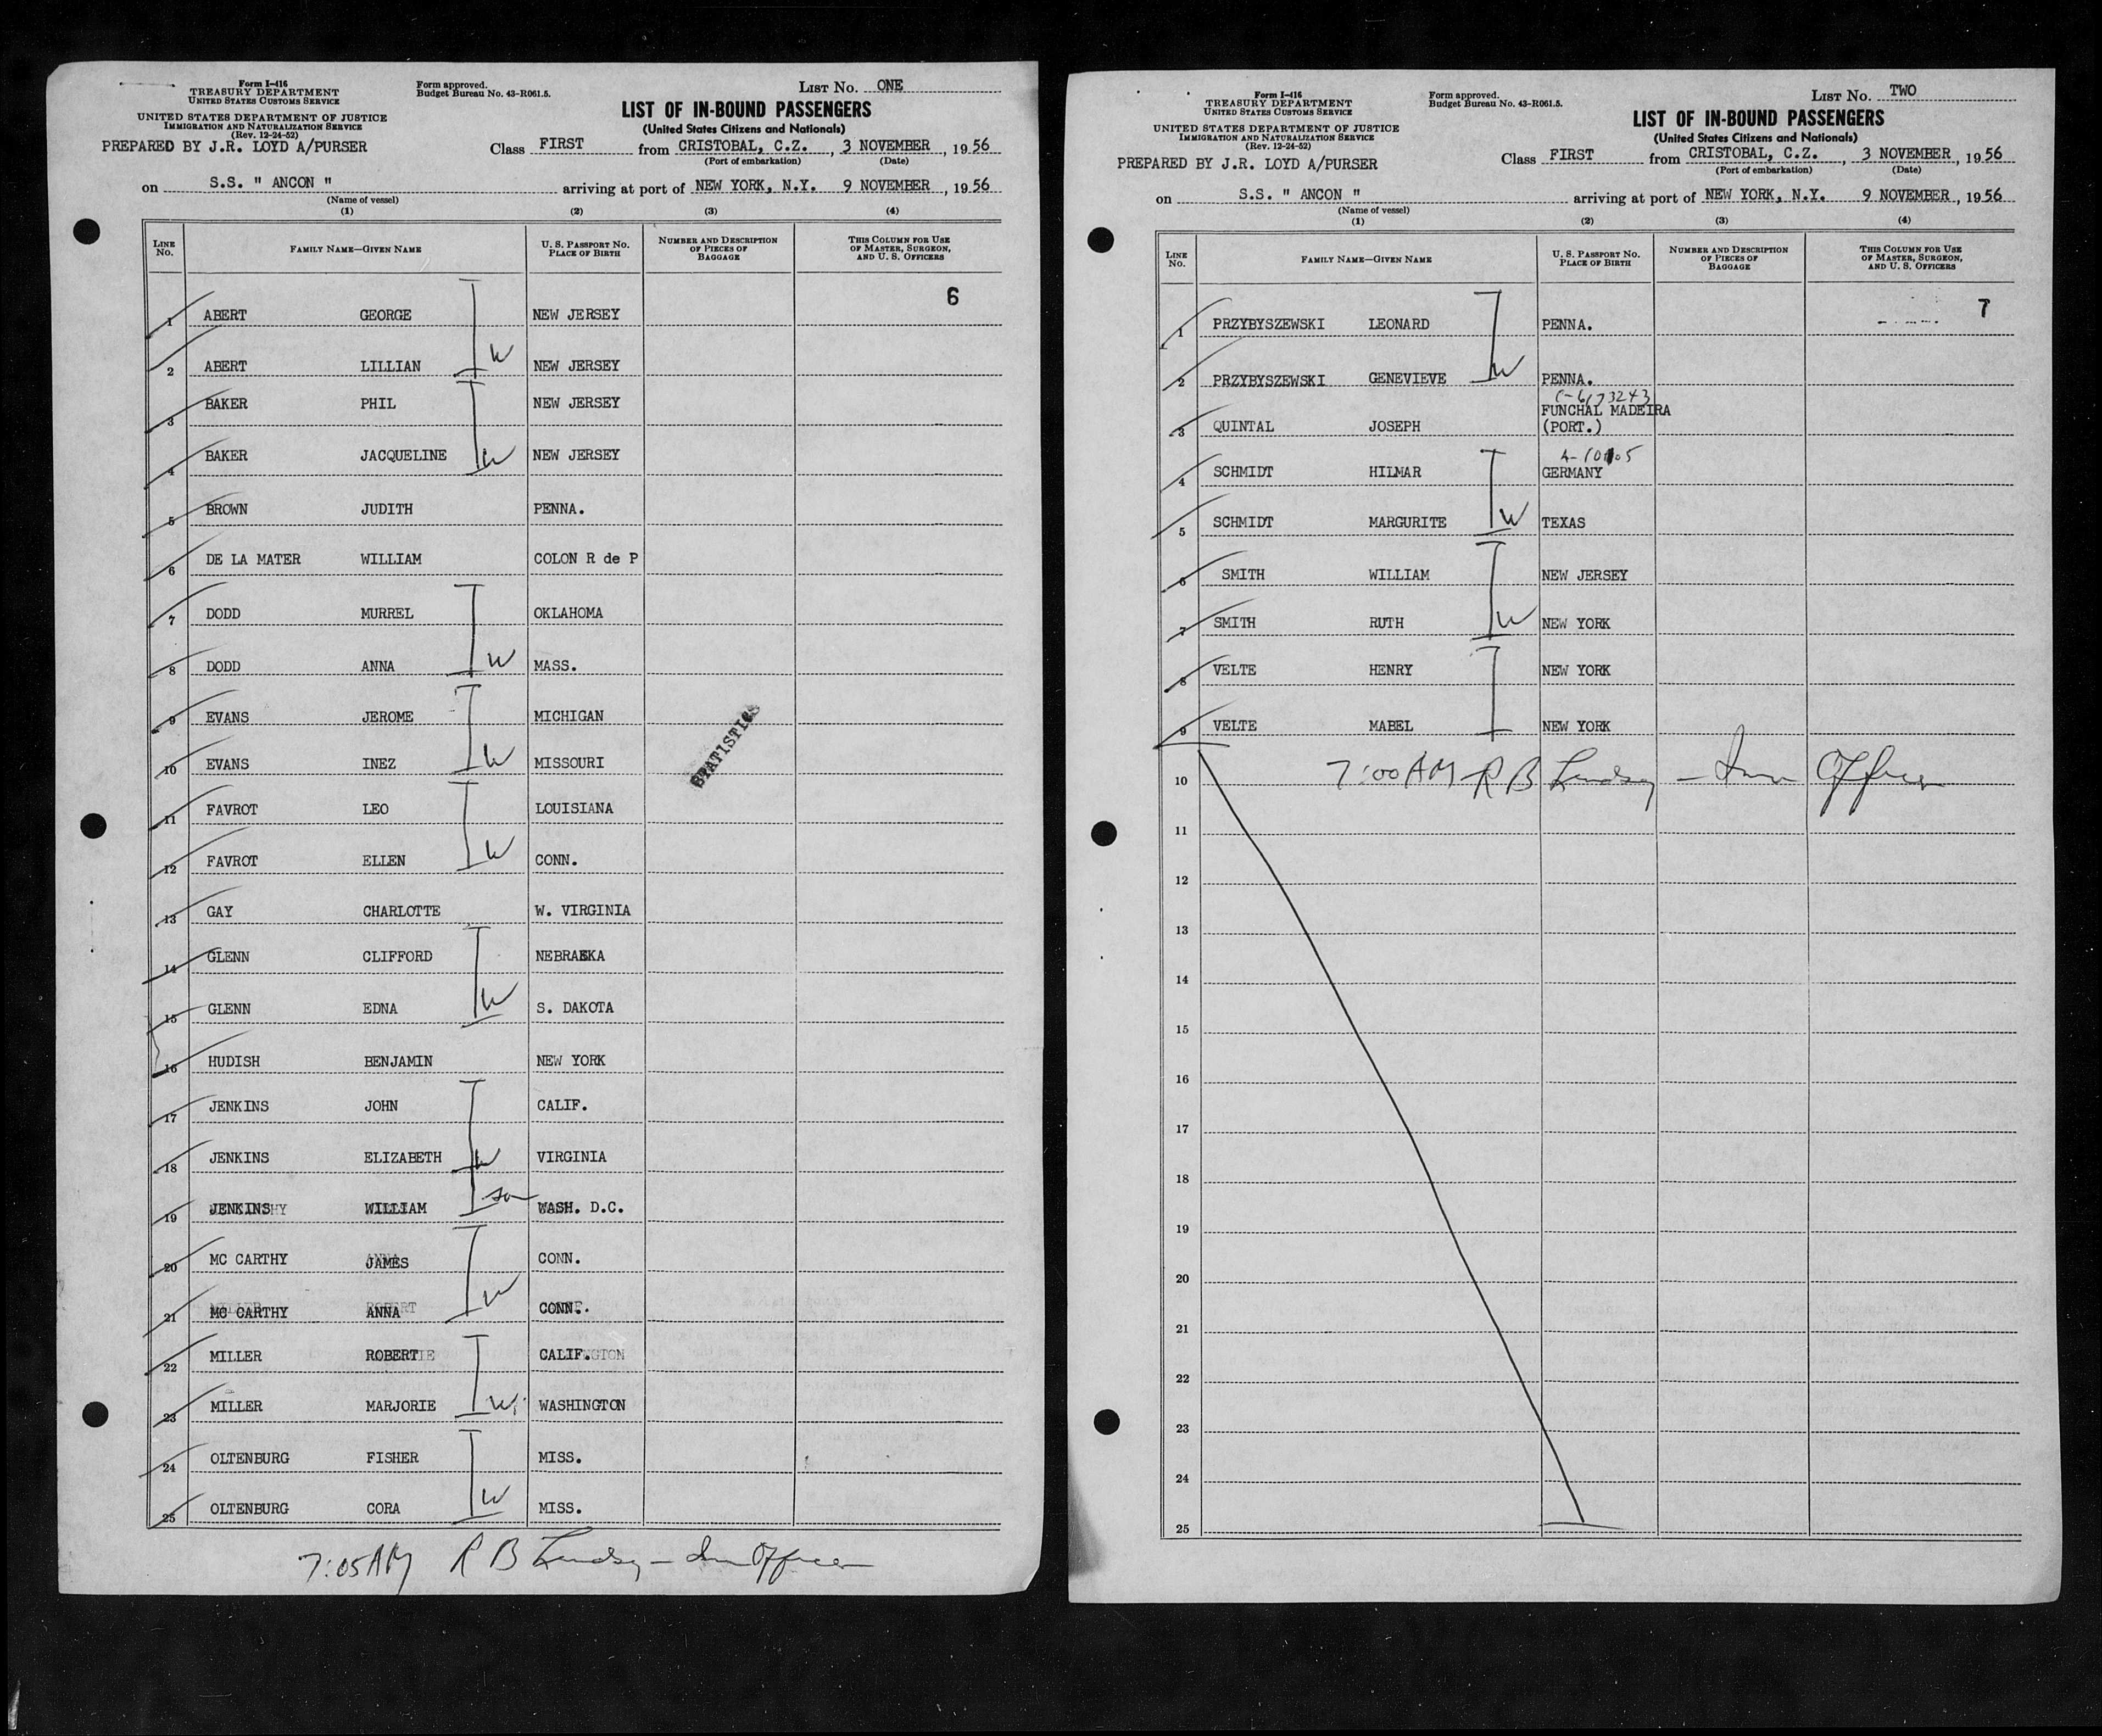 Form I-416
TREASURY DEPARTMENT
UNITED STATES CUSTOMS SERVICE
UNITED STATES DEPARTMENT OF JUSTICE
IMMIGRATION AND NATURALIZATION SERVICE
(Rev. 12-24-52)
PREPARED BY J.R. LOYD A/PURSER
Form approved.
Budget Bureau No. 43-R061.5.
LIST No. ONE
LIST OF IN-BOUND PASSENGERS
(United States Citizens and Nationals)
Class FIRST from CRISTOBAL, C.Z., 3 NOVEMBER, 1956
(Port of embarkation) (Date)
on S.S. " ANCON " arriving at port of NEW YORK, N.Y. 9 NOVEMBER, 1956
(Name of vessel)
(1) (2) (3) (4)
LINE No. FAMILY NAME—GIVEN NAME U. S. PASSPORT No. PLACE OF BIRTH NUMBER AND DESCRIPTION OF PIECES OF BAGGAGE THIS COLUMN FOR USE OF MASTER, SURGEON, AND U. S. OFFICERS
6
1 ABERT GEORGE NEW JERSEY
2 ABERT LILLIAN W NEW JERSEY
3 BAKER PHIL NEW JERSEY
4 BAKER JACQUELINE W NEW JERSEY
5 BROWN JUDITH PENNA.
6 DE LA MATER WILLIAM COLON R de P
7 DODD MURREL OKLAHOMA
8 DODD ANNA W MASS.
9 EVANS JEROME MICHIGAN
10 EVANS INEZ W MISSOURI
STATISTICS
11 FAVROT LEO LOUISIANA
12 FAVROT ELLEN W CONN.
13 GAY CHARLOTTE W. VIRGINIA
14 GLENN CLIFFORD NEBRASKA
15 GLENN EDNA W S. DAKOTA
16 HUDISH BENJAMIN NEW YORK
17 JENKINS JOHN CALIF.
18 JENKINS ELIZABETH W VIRGINIA
19 JENKINS WILLIAM son WASH. D.C.
20 MC CARTHY JAMES CONN.
21 MC CARTHY ANNA W CONN.
22 MILLER ROBERT CALIF.
23 MILLER MARJORIE W WASHINGTON
24 OLTENBURG FISHER MISS.
25 OLTENBURG CORA W MISS.
7:05 AM R B Lindsy — Imm Officer
Form I-416
TREASURY DEPARTMENT
UNITED STATES CUSTOMS SERVICE
UNITED STATES DEPARTMENT OF JUSTICE
IMMIGRATION AND NATURALIZATION SERVICE
(Rev. 12-24-52)
PREPARED BY J.R. LOYD A/PURSER
Form approved.
Budget Bureau No. 43-R061.5.
LIST No. TWO
LIST OF IN-BOUND PASSENGERS
(United States Citizens and Nationals)
Class FIRST from CRISTOBAL, C.Z., 3 NOVEMBER, 1956
(Port of embarkation) (Date)
on S.S. " ANCON " arriving at port of NEW YORK, N.Y. 9 NOVEMBER, 1956
(Name of vessel)
(1) (2) (3) (4)
LINE No. FAMILY NAME—GIVEN NAME U. S. PASSPORT No. PLACE OF BIRTH NUMBER AND DESCRIPTION OF PIECES OF BAGGAGE THIS COLUMN FOR USE OF MASTER, SURGEON, AND U. S. OFFICERS
7
1 PRZYBYSZEWSKI LEONARD PENNA.
2 PRZYBYSZEWSKI GENEVIEVE W PENNA.
C-6173243
FUNCHAL MADEIRA
3 QUINTAL JOSEPH (PORT.)
4 SCHMIDT HILMAR GERMANY
5 SCHMIDT MARGURITE W TEXAS
6 SMITH WILLIAM NEW JERSEY
7 SMITH RUTH W NEW YORK
8 VELTE HENRY NEW YORK
9 VELTE MABEL NEW YORK
10 7:00 AM R B Lindsy — Imm Officer
11
12
13
14
15
16
17
18
19
20
21
22
23
24
25